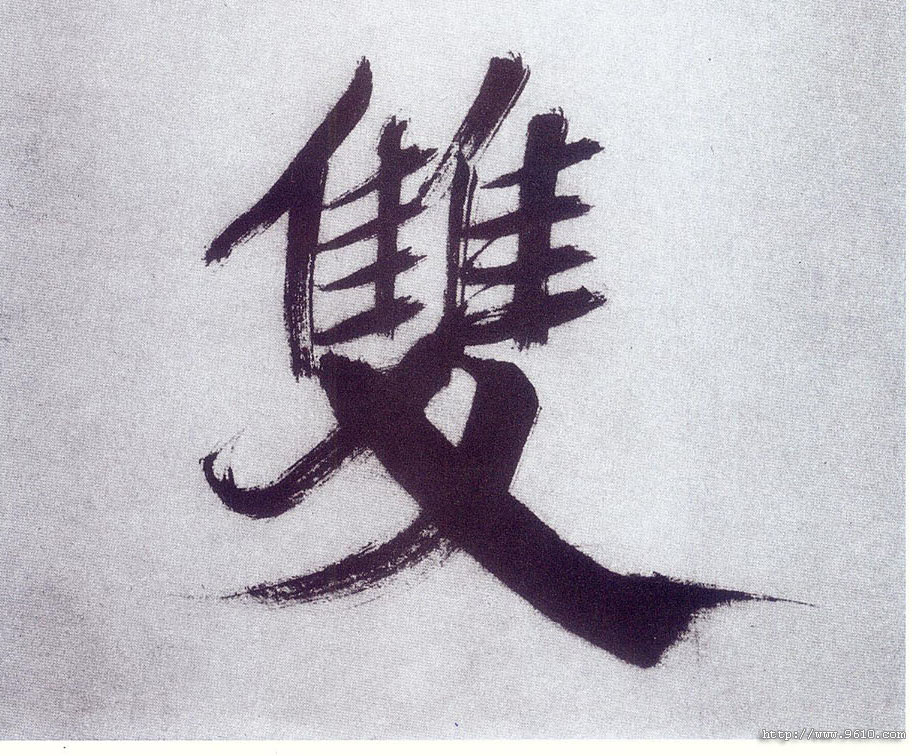 雙
http://www.9610.com